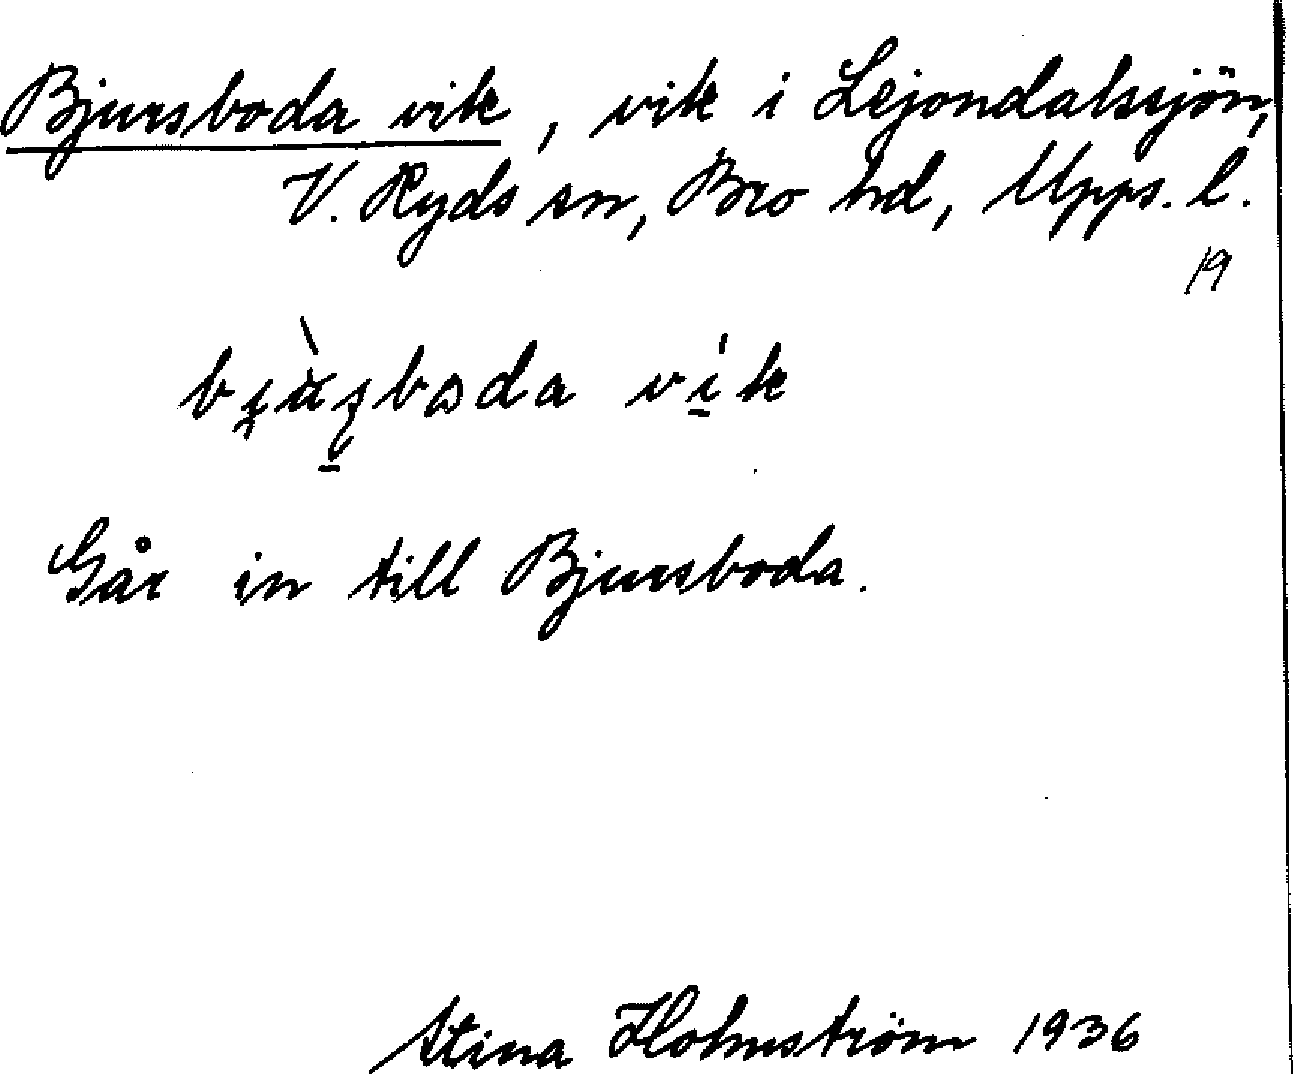 Bjursboda vik, vik i Lejondalssjön,
V. Ryds sn, Bro hd, Upps. l.
19
Går in till Bjursboda.
Stina Holmström 1936